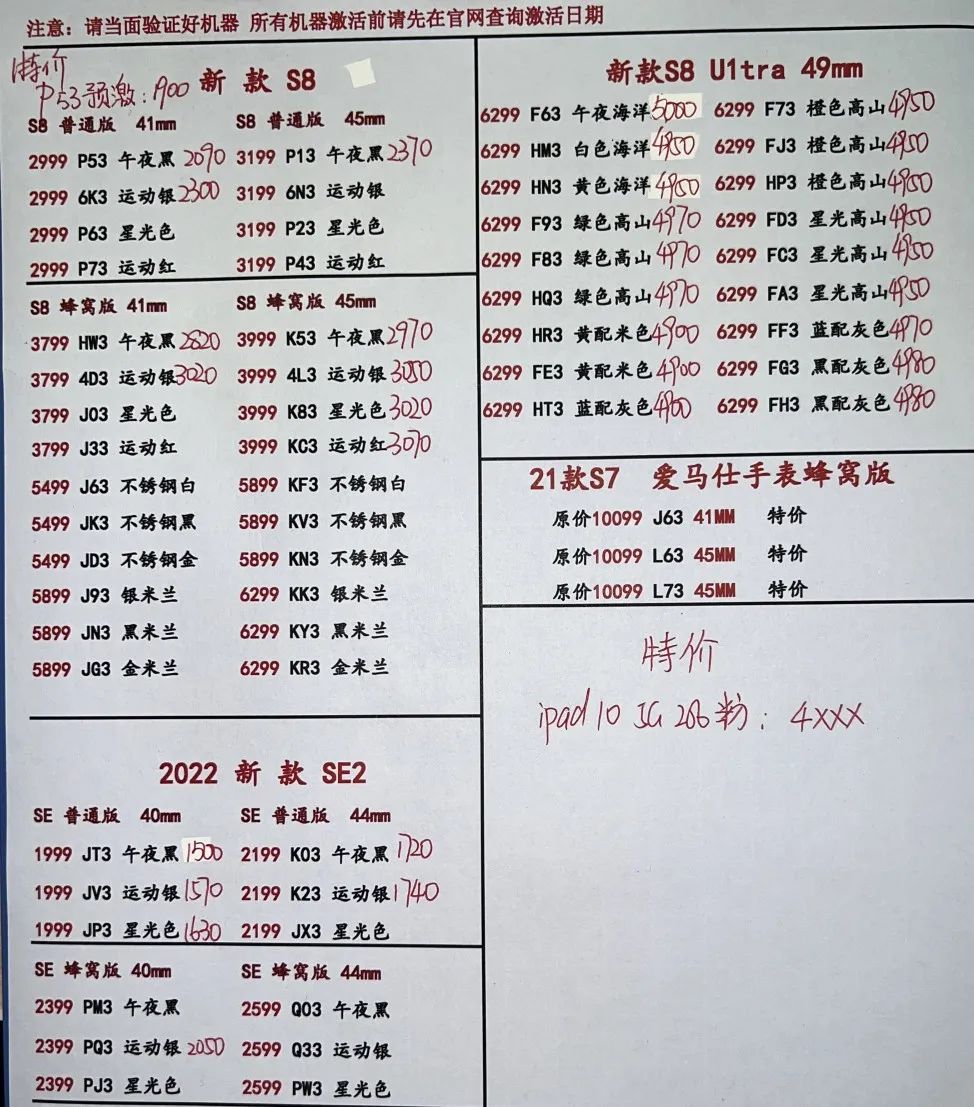 注意：请当面验证好机器 所有机器激活前请先在官网查询激活日期
特价
P53预激：1900
新 款 S8
S8 普通版 41mm
2999 P53 午夜黑 2090
2999 6K3 运动银 2300
2999 P63 星光色
2999 P73 运动红
S8 普通版 45mm
3199 P13 午夜黑 2370
3199 6N3 运动银
3199 P23 星光色
3199 P43 运动红
S8 蜂窝版 41mm
3799 HW3 午夜黑 2820
3799 4D3 运动银 3020
3799 J03 星光色
3799 J33 运动红
5499 J63 不锈钢白
5499 JK3 不锈钢黑
5499 JD3 不锈钢金
5899 J93 银米兰
5899 JN3 黑米兰
5899 JG3 金米兰
S8 蜂窝版 45mm
3999 K53 午夜黑 2970
3999 4L3 运动银 3050
3999 K83 星光色 3020
3999 KC3 运动红 3070
5899 KF3 不锈钢白
5899 KV3 不锈钢黑
5899 KN3 不锈钢金
6299 KK3 银米兰
6299 KY3 黑米兰
6299 KR3 金米兰
2022 新 款 SE2
SE 普通版 40mm
1999 JT3 午夜黑 1500
1999 JV3 运动银 1570
1999 JP3 星光色 1630
SE 普通版 44mm
2199 K03 午夜黑 1720
2199 K23 运动银 1740
2199 JX3 星光色
SE 蜂窝版 40mm
2399 PM3 午夜黑
2399 PQ3 运动银 2050
2399 PJ3 星光色
SE 蜂窝版 44mm
2599 Q03 午夜黑
2599 Q33 运动银
2599 PW3 星光色
新款S8 U1tra 49mm
6299 F63 午夜海洋 5000
6299 HM3 白色海洋 4950
6299 HN3 黄色海洋 4950
6299 F93 绿色高山 4970
6299 F83 绿色高山 4970
6299 HQ3 绿色高山 4970
6299 HR3 黄配米色 4900
6299 FE3 黄配米色 4900
6299 HT3 蓝配灰色
6299 F73 橙色高山 4950
6299 FJ3 橙色高山 4950
6299 HP3 橙色高山 4950
6299 FD3 星光高山 4950
6299 FC3 星光高山 4950
6299 FA3 星光高山 4950
6299 FF3 蓝配灰色 4970
6299 FG3 黑配灰色 4980
6299 FH3 黑配灰色 4980
21款S7 爱马仕手表蜂窝版
原价10099 J63 41MM 特价
原价10099 L63 45MM 特价
原价10099 L73 45MM 特价
特价
ipad 10 5G 粉：4XXX